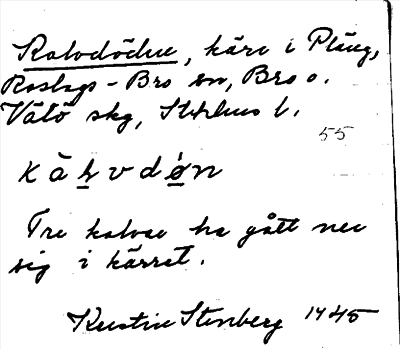 Kalvdöden, kärr i Pläng,
Roslags-Bro sn, Bro o.
Väto skg, Sthlms l.
55
k ā ḷ v d ǿ̱ n
Tre kalvar ha gått ner
sig i kärret.
Kerstin Stenberg 1945